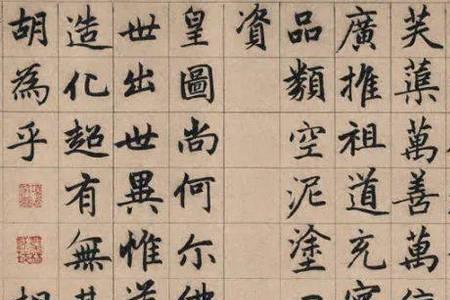 芙蕖萬善萬
廣推祖道充
品類空泥塗
資
皇圖尚何尔
世出世異惟
造化超有無
胡為乎